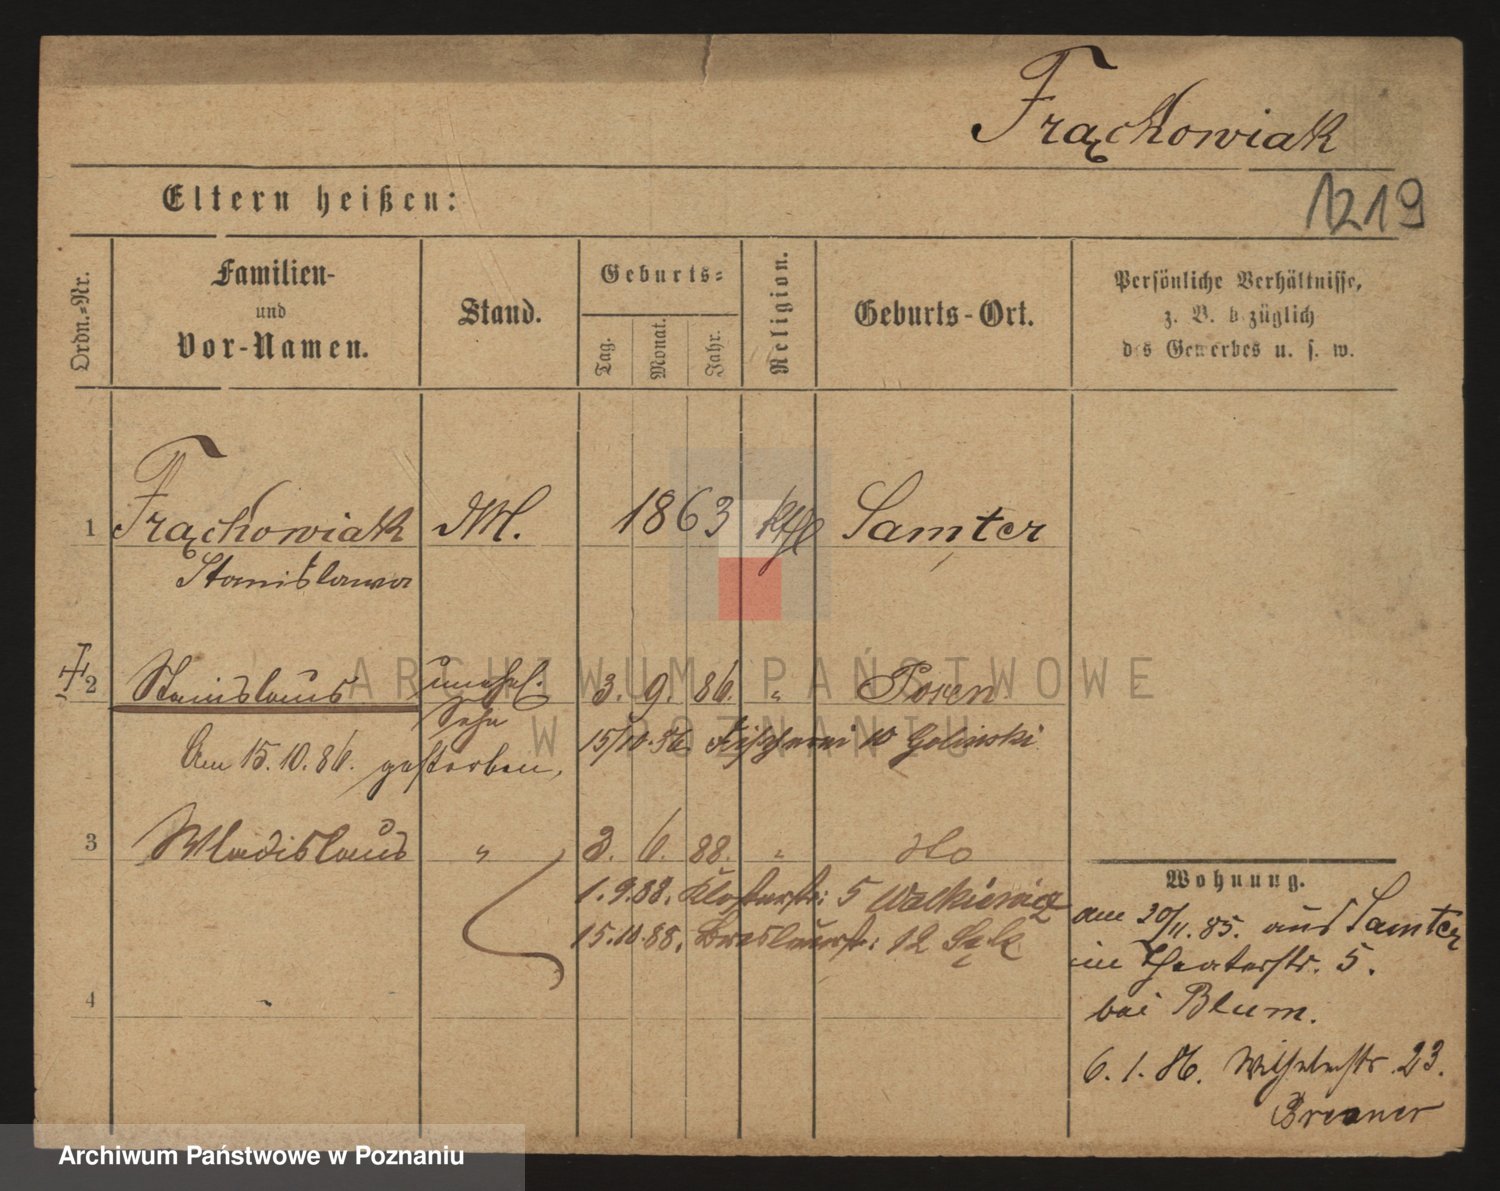 Frąckowiak
Eltern heißen:
1219
Ordn.-Nr.
Familien-
und
Vor-Namen.
Stand.
Geburts-
Tag.
Monat.
Jahr.
Religion.
Geburts-Ort.
Persönliche Verhältnisse,
z. B. bezüglich
des Gewerbes u. s. w.
1 Frąckowiak M. 1863 kth Samter
Stanislawa
2 Stanislaus unehel. 3. 9. 86. " Posen
Sohn
15/10.86. Fischerei 10 Golinski
Am 15.10.86. gestorben,
3 Wladislaus " 3. 6. 88. " do
1.9.88. Klosterstr: 5 Walkiewicz
15.10.88. Breslauerstr: 12
4
Wohnung.
am 30/11.85. aus Samter
in Theaterstr. 5.
bei Blum.
6.1.86. Wilhelmstr. 23.
Brenner
ARCHIWUM PAŃSTWOWE
W POZNANIU
Archiwum Państwowe w Poznaniu